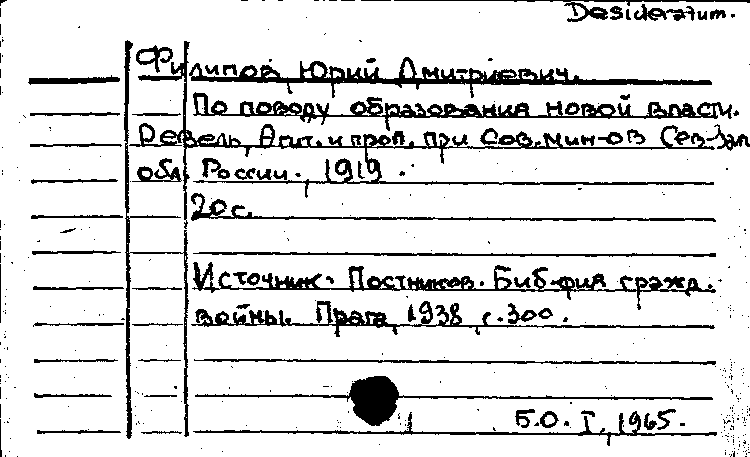 Desideratum.
Филипов, Юрий Дмитриевич.
По поводу образования новой власти.
Ревель, Агит. и проп. при Сов. мин-ов Сев-Зап
обл. России., 1919.
20 с.
Источник. Постников. Биб-фия гражд.
войны. Прага, 1938, с. 300.
Б.О. I, 1965.